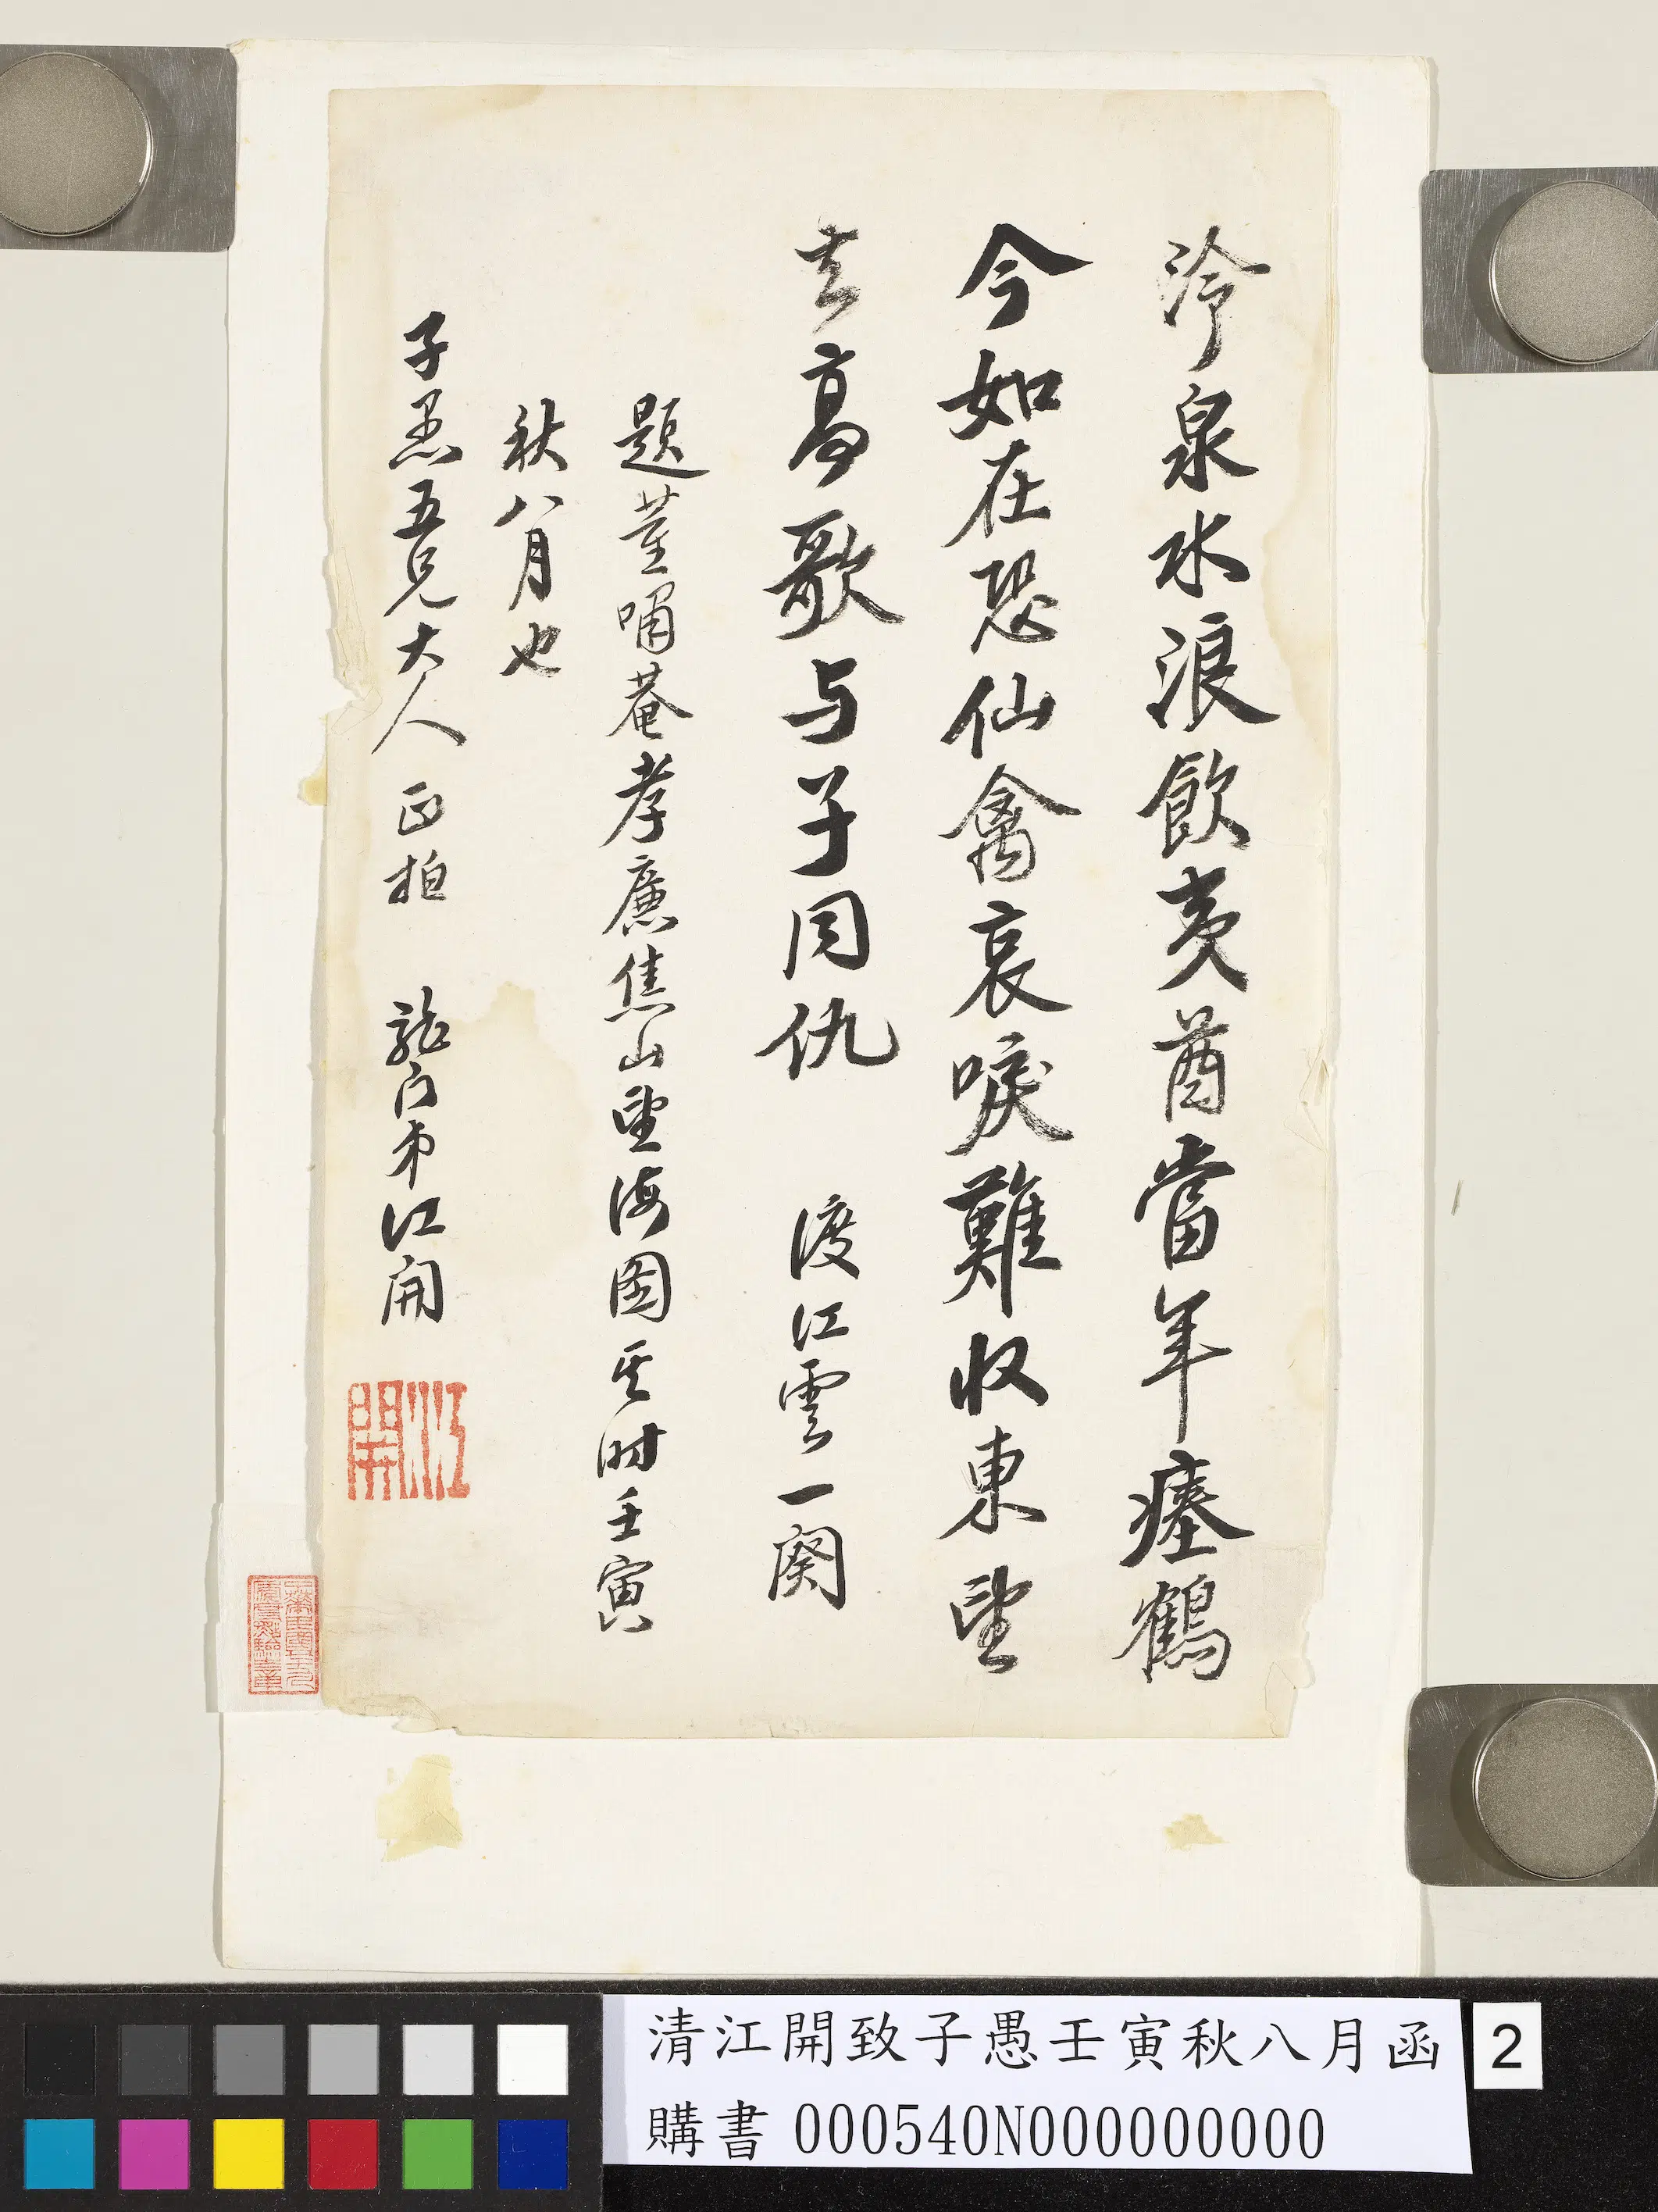 泠泉水浪飲夷酋當年瘞鶴
今如在恐仙禽哀唳難收東望
去高歌与子同仇　渡江雲一闋
題董嘯菴孝廉焦山望海图其时壬寅
秋八月也
子愚五兄大人正拍　龍门弟江開
江開
清江開致子愚壬寅秋八月函
購書 000540N000000000
2